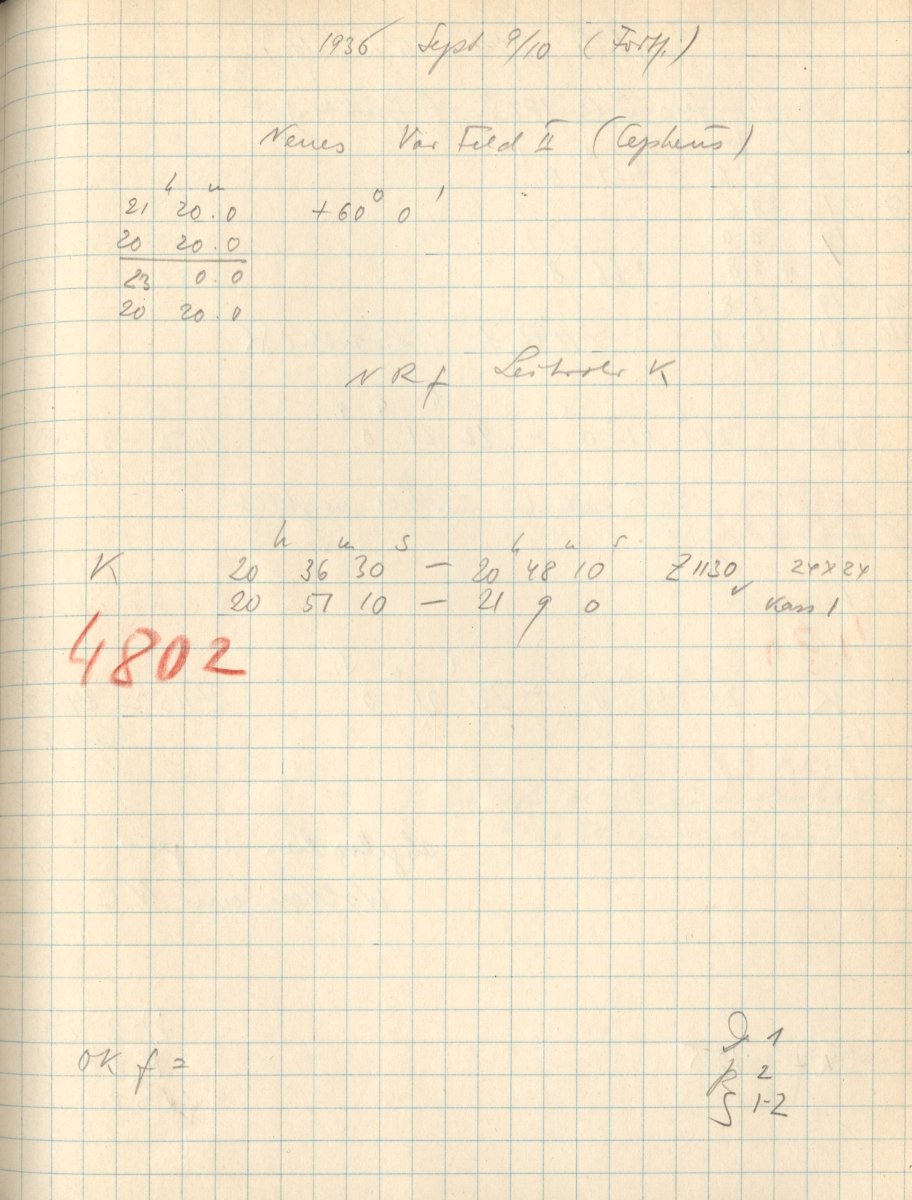 1936 Sept 9/10 (Forts.)
Neues Var Feld II (Cepheus)
21 h 20 m .0 +60° 0'
20 20.0
23 0.0
20 20.0
NRf Leitrohr K
K 20 h 36 m 30 s — 20 h 48 m 10 s Z1130 24x24
20 51 10 — 21 9 0 Kass 1
4802
OK f =
D 1
R 2
S 1-2